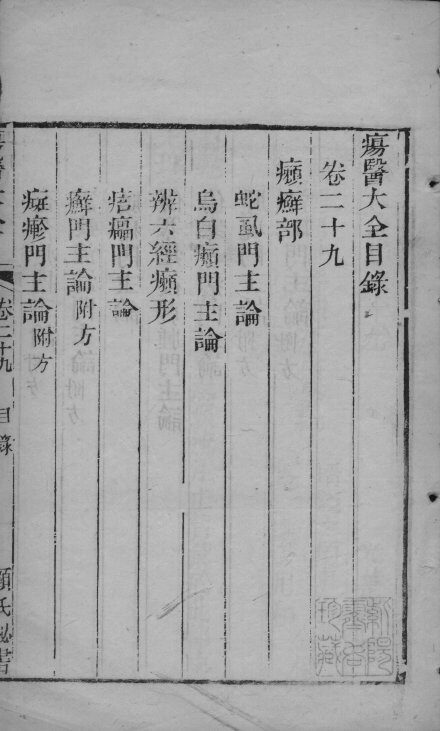 瘍醫大全目錄
卷二十九
癩癬部
蛇虱門主論
烏白癩門主論
辨六經癩形
痞𤺺門主論
癬門主論附方
癡瘮門主論附方
卷二十九 目錄
顧氏秘書